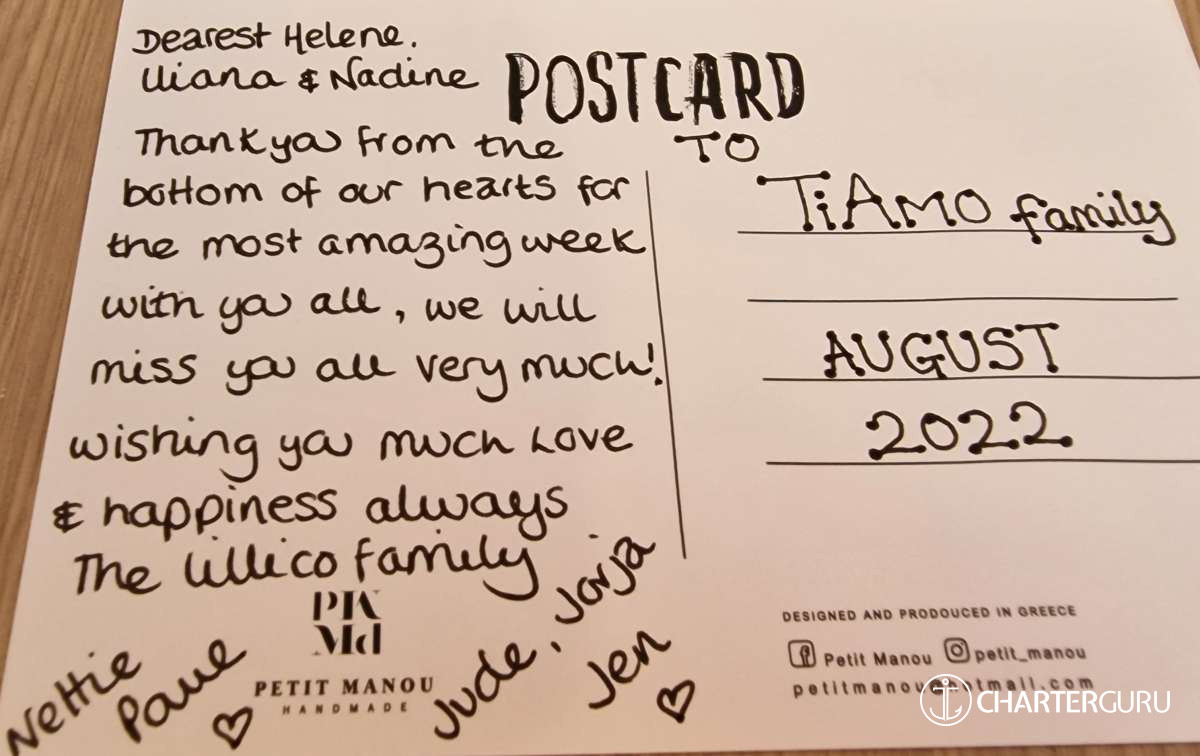 Dearest Helene.
Iliana & Nadine
Thank you from the
bottom of our hearts for
the most amazing week
with you all, we will
miss you all very much!
wishing you much Love
& happiness always
The Lillico family
Nettie
Paul
Jude, Jorja
Jen
PETIT MANOU
HANDMADE
POSTCARD
TO
TiAMO family
AUGUST
2022
DESIGNED AND PRODOUCED IN GREECE
Petit Manou petit_manou
petitmanou@hotmail.com
CHARTERGURU